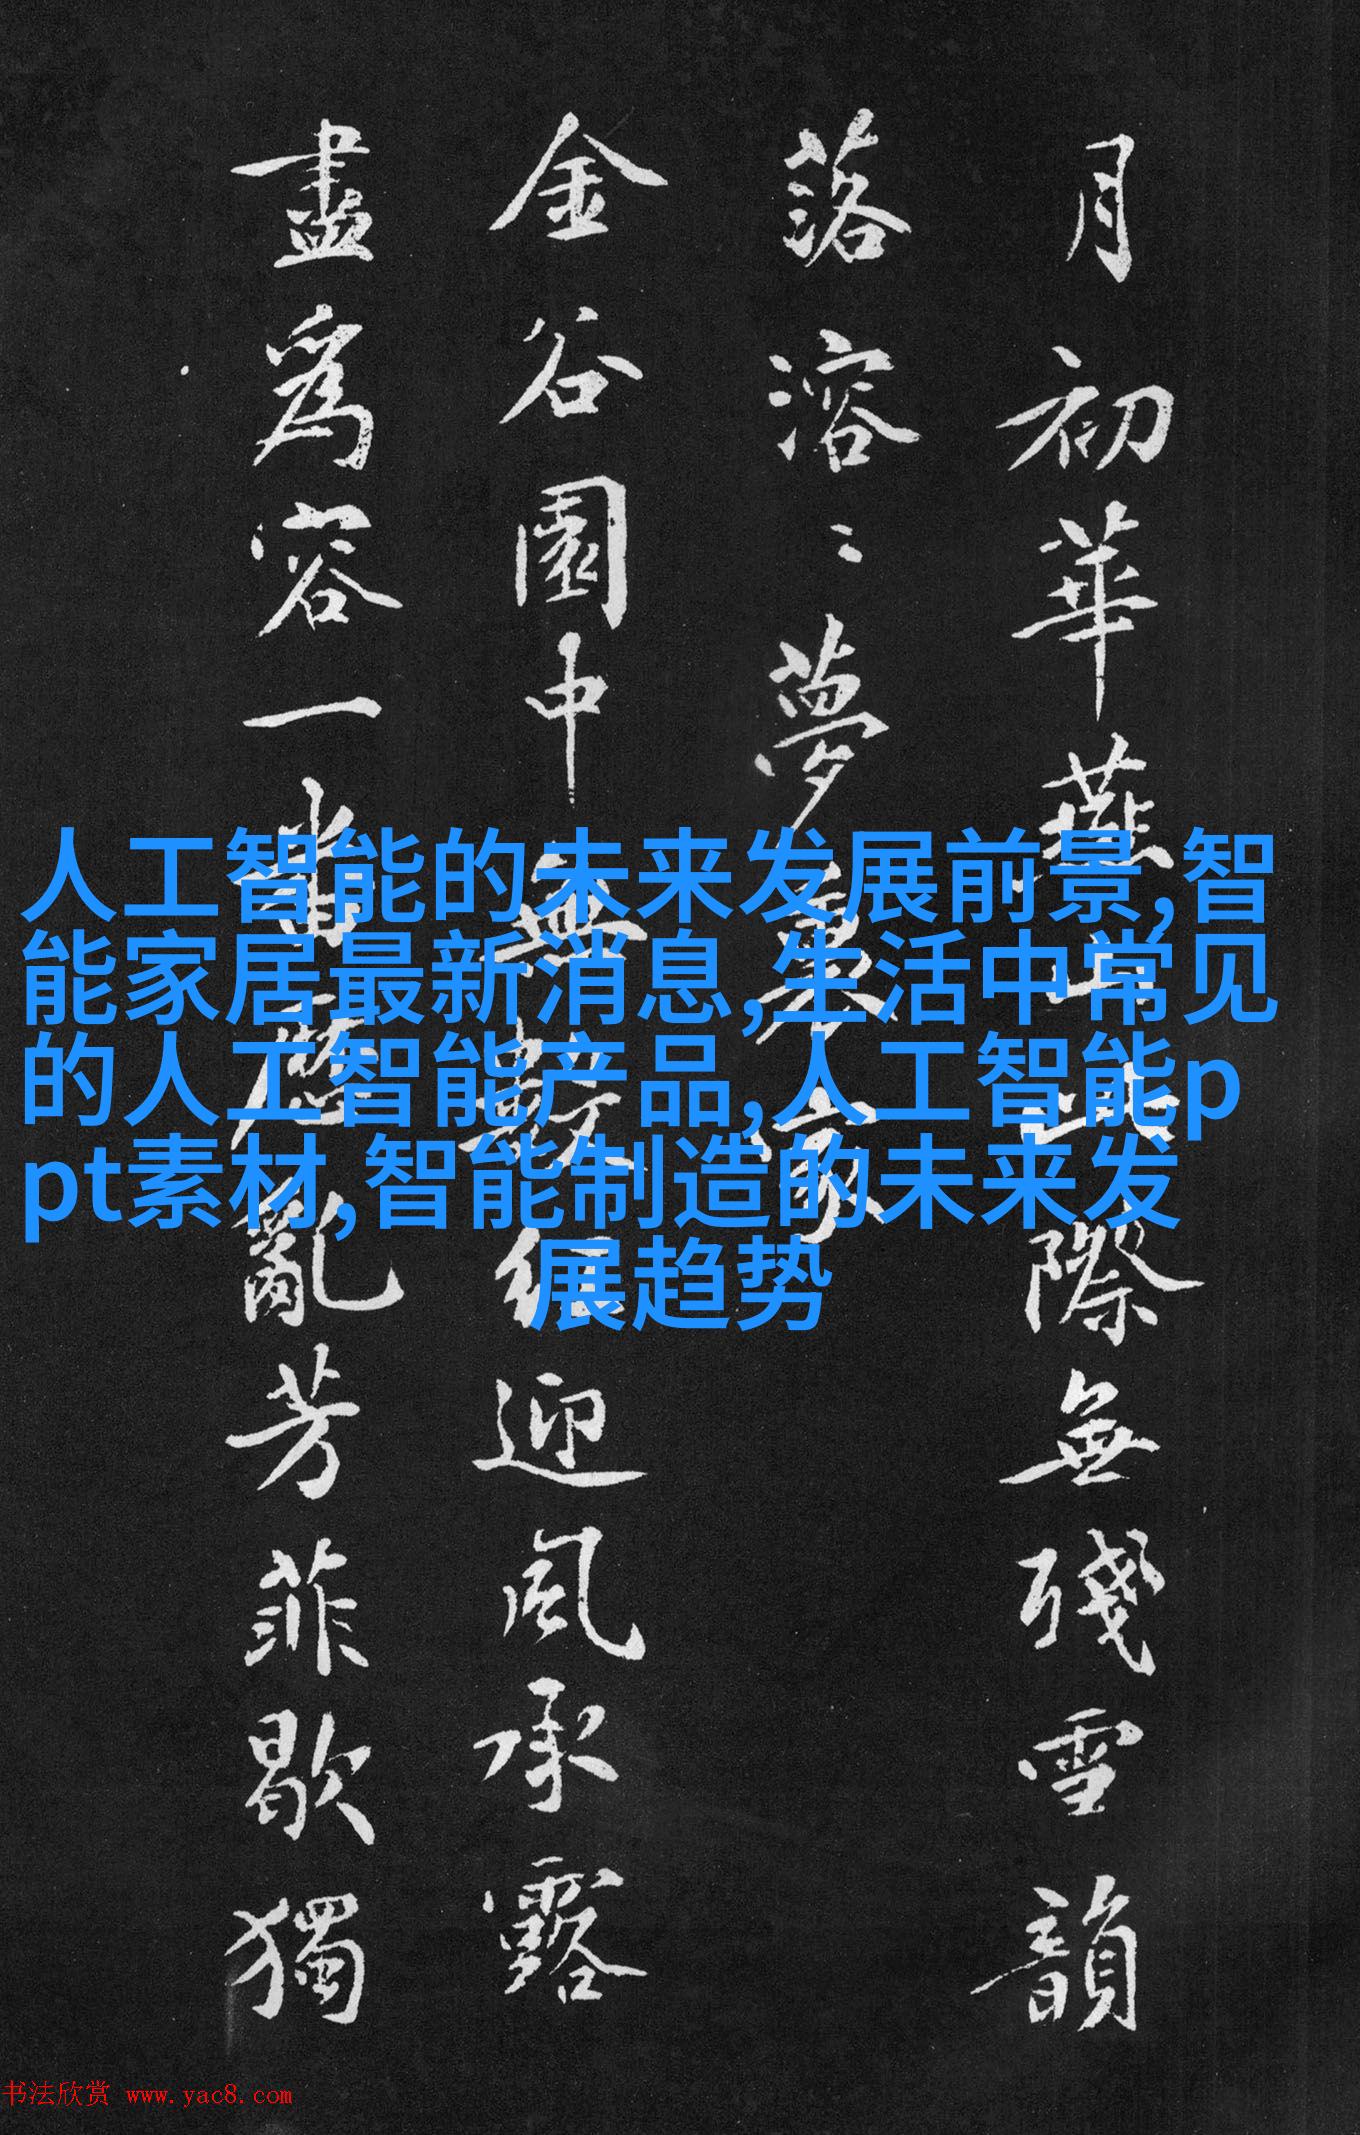 月初華燕山此際無殘雪韻
落溶〻夢裏家
金谷園中無數紅迎風承露
盡為容一番歷亂芳菲歇獨
人工智能的未来发展前景,智
能家居最新消息,生活中常见
的人工智能产品,人工智能p
pt素材,智能制造的未来发
展趋势
书法欣赏 www.yac8.com